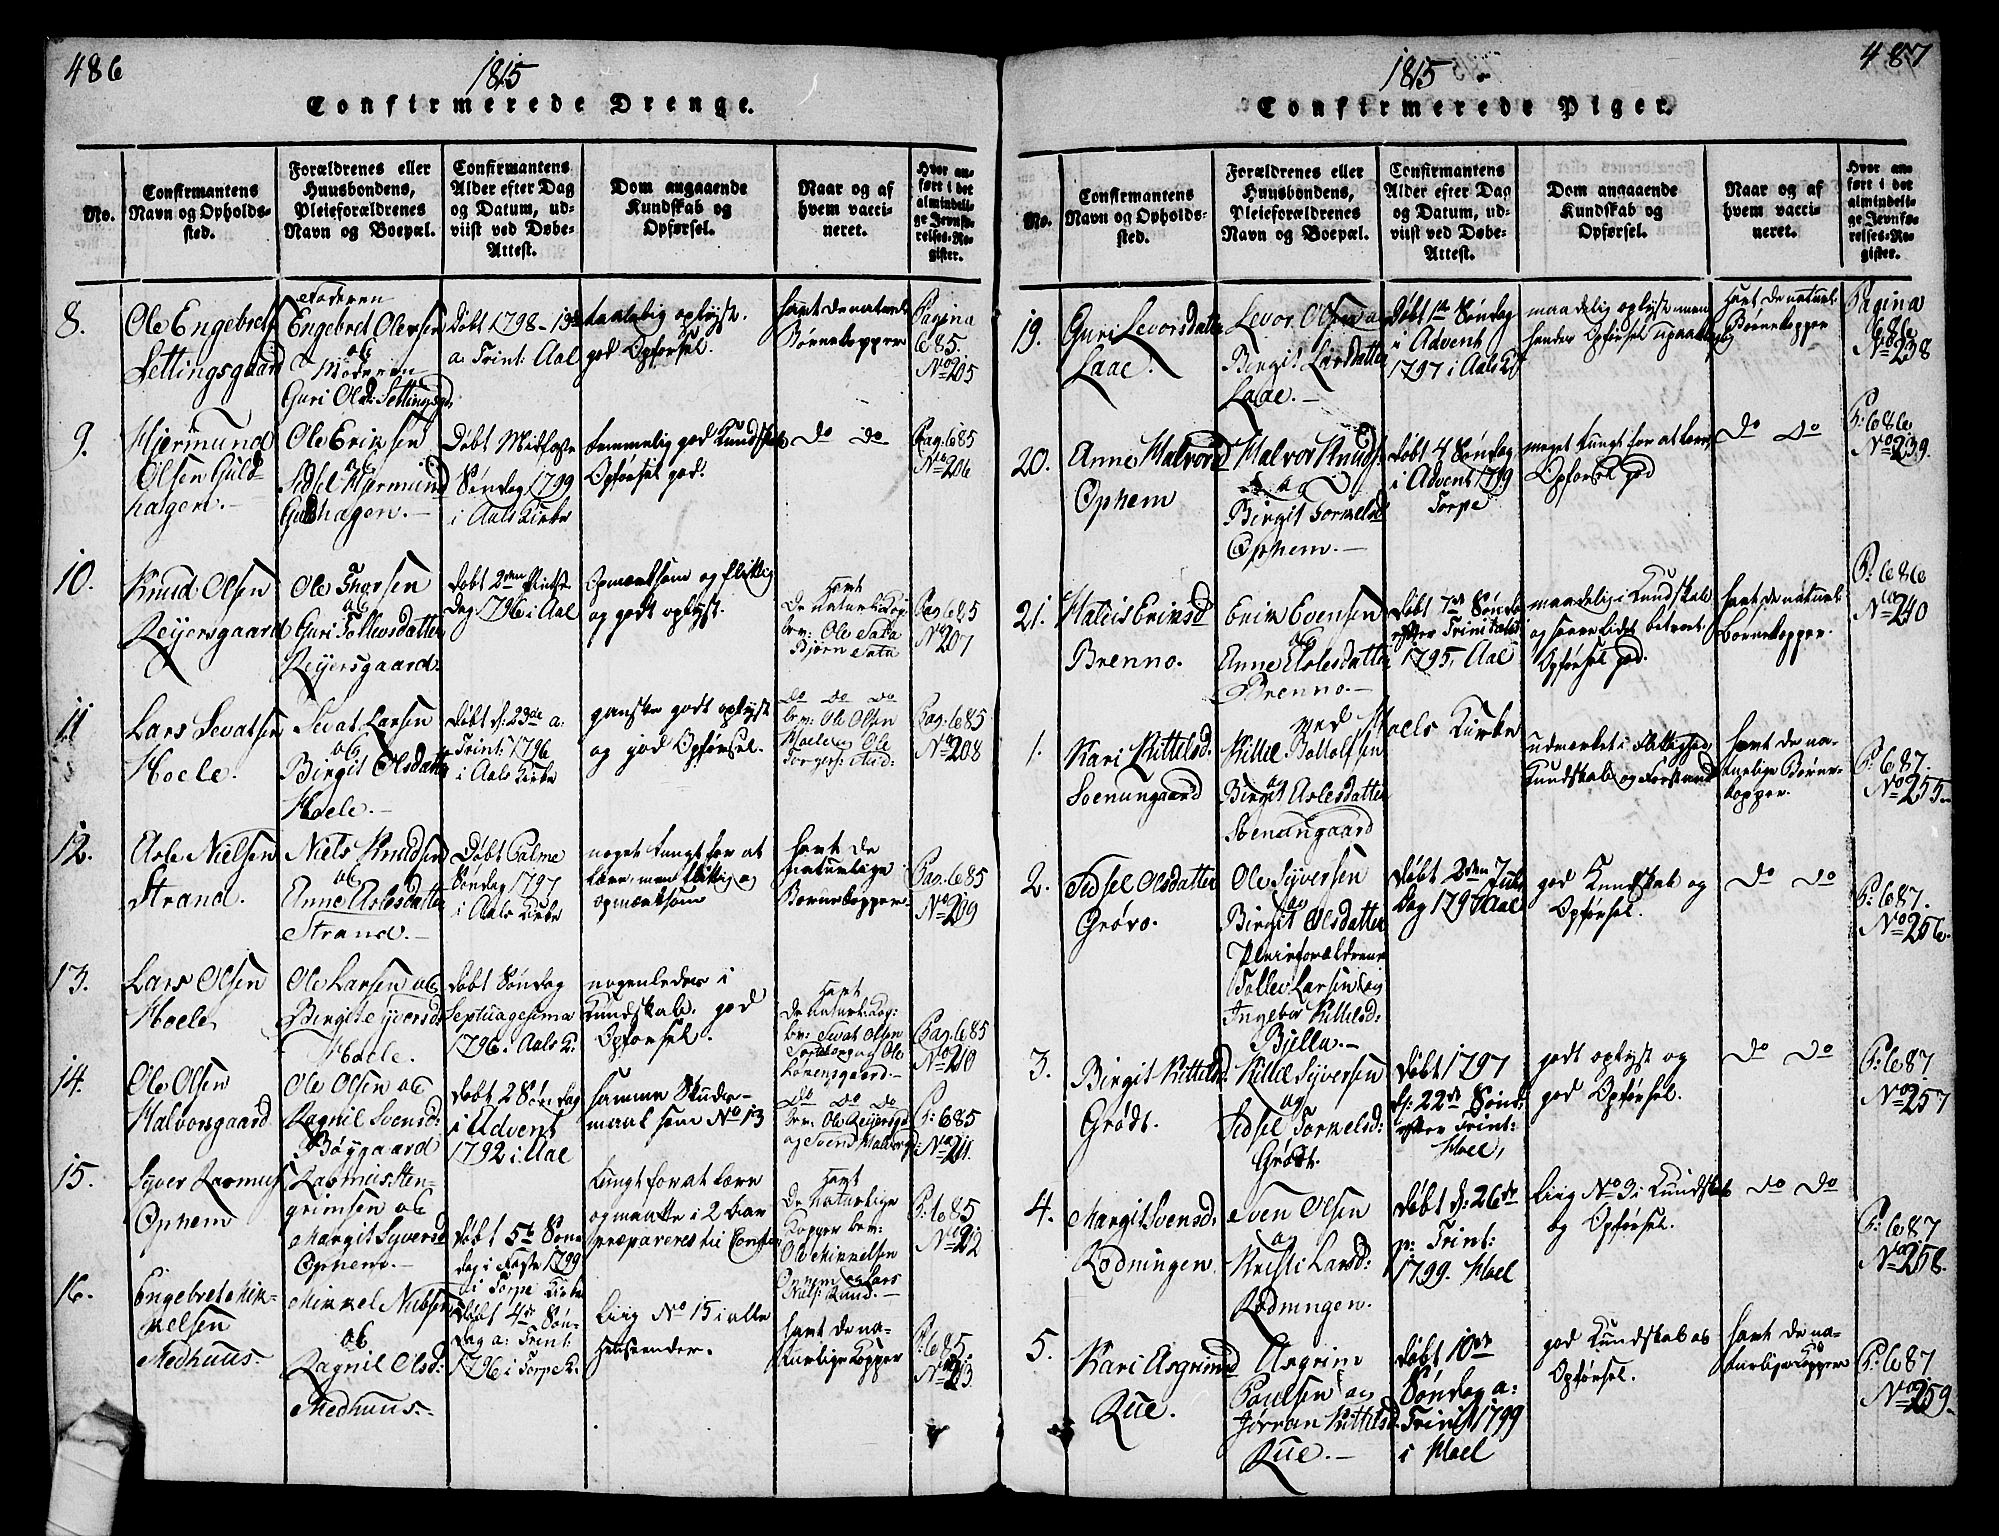 486
1815
Confirmerede Drenge.
No.
Confirmantens
Navn og Opholds-
sted.
Forældrenes eller
Huusbondens,
Pleieforældrenes
Navn og Boepæl.
Confirmantens
Alder efter Dag
og Datum, ud-
viist ved Døbe-
Attest.
Dom angaaende
Kundskab og
Opførsel.
Naar og af
hvem vacci-
neret.
Hvor an-
ført i det
almindeli-
ge Jevnfø-
relses-Re-
gister.
8.
Ole Engebrets
Settingsgaard
Faderen
Engebret Olersen
og
Moderen
Guri Olsd: Settingsgd
Døbt 1798 - 13de
a: Trint: Aal
taalelig oplyst.
god Opførsel.
havt de naturl:
Børnekopper
Pagina
685
No 205
9.
Hjermund
Olsen Guld-
hagen.-
Ole Eriksen
og
Sidsel Hjermund
Guldhagen.-
Døbt Midfaste
Søndag 1799
i Aals Kirke
temmelig god Kundskab
Opførsel god.
do do
Pag: 685
No 206
10.
Knud Olsen
Reijersgaard
Ole Thorsen
og
Guri Tollevsdatter
Reijersgaard.
Døbt 2den Pintse
Dag 1796 i Aal
Opmærksom og flittig
og godt oplyst.
havt
de naturl: Kop:
bev: Ole Sata
Bjørn Sata
Pag: 685
No 207
11
Lars Sevatsen
Hoele.
Sevat Larsen
og
Birgit Olsdatter
Hoele.-
Døbt d: 23de a:
Trint: 1796
i Aals Kirke
ganske godt oplyst
og god Opførsel.
do do do
bev: Ole Olsen
Pag: 685
No 208
12.
Asle Nielsen
Strand.
Niels Knudsen
og
Anne Aslesdatter
Strand.-
Døbt Palme
Søndag 1797
i Aals Kirke
noget tungt for at
lære, men flittig og
opmærksom
havt de
naturlige
Børnekopper
Pag: 685
No 209
13.
Lars Olsen
Hoele
Ole Larsen og
Birgit Syversd:
Hoele.
Døbt Søndag
Septuagesima
1796. Aals K:
nogenledes i
Kundskab. god
Opførsel.
havt
de naturl: Kop:
bev: Sevat Olsen
og Ole
Pag: 685
No 210
14.
Ole Olsen
Halvorsgaard
Ole Olsen og
Ragnil Svensd:
Bøygaard
Døbt 2 Søndag
i Advent
1792 i Aal
samme Skuds-
maal som No 13
do do do
bev: Ole Reijersgd
og Svend Halvorsgd:
P: 685
No 211.
15.
Syver Rasmus
Ophem
Rasmus Sten-
grimsen og
Margit Syversd
Ophem.-
Døbt 5te Søn-
dag i Faste 1799
i Torpe Kirke
tungt for at lære
og maatte i 2 Aar
præpareres til Confirm
havt
de naturlige
Kopper bev:
Ole Mikkelsen
Ophem og Lars
P: 685
No 212
16.
Engebret Mik-
kelsen
Medhuus.-
Mikkel Nubsen
og
Ragnil Olsd:
Medhuus.-
Døbt 4de Søn-
dag a: Trint:
1796 i Torpe K:
liig No 15 i alle
Henseender.
havt de na-
turlige Kopper
P: 685.
No 213.
487
1815
Confirmerede Piger.
No.
Confirmantens
Navn og Opholds-
sted.
Forældrenes eller
Huusbondens,
Pleieforældrenes
Navn og Boepæl.
Confirmantens
Alder efter Dag
og Datum, ud-
viist ved Døbe-
Attest.
Dom angaaende
Kundskab og
Opførsel.
Naar og af
hvem vacci-
neret.
Hvor an-
ført i det
almindeli-
ge Jevnfø-
relses-Re-
gister.
19.
Guri Levorsdatter
Laae.
Levor Olsen og
Birgit Larsdatter
Laae.-
Døbt 1ste Søndag
i Advent
1797 i Aals K:
maadelig oplyst men
hendes Opførsel
havt de naturl:
Børnekopper
Pagina
686
No 238
20.
Anne Halvorsd
Ophem
Halvor Knuds:
og
Birgit Torkelsd
Ophem.-
Døbt 4 Søndag
i Advent 1799
Torpe
meget tungt for at lære
Opførsel god
do do
P: 686
No 239.
21.
Eriksd
Brenno.
Erik Evensen
og
Anne Aslesdatter
Brenno.-
Døbt 7de Sønd:
efter Trinitatis
1795, Aal
maadelig i Kundskab
Opførsel god.
havt de naturl:
Børnekopper.
P: 686
No 240
ved Hoels Kirke
1.
Kari Kittelsd:
Soenungaard
Kittil Bottolfsen
og
Birgit Aslesdatter
Soenungaard
udmærket i Flittighed
Kundskab og Forstand
havt de na-
turlige Børne-
kopper.
P: 687.
No 255.
2.
Sidsel Olsdatter
Grøvo.
Ole Syversen
og
Birgit Olsdatter
Pleieforældrene
Tollev Larsen og
Ingebor Kittelsd:
Bjella.-
Døbt 2den Jule
Dag 1797 Aal
god Kundskab og
Opførsel.
do do
P: 687.
No 256.
3.
Birgit Kittelsd:
Grødt.
Kittil Syversen
og
Sidsel Torkelsd:
Grødt.
Døbt 1797
d: 22de Sønd:
efter Trint:
Hoel,
godt oplyst og
god Opførsel.
do do
P: 687
No 257
4.
Margit Svensd:
Rodningen
Sven Olsen
og
Kristi Larsd:
Rodningen.
Døbt d: 26de
p: Trint:
1799. Hoel
liig No 3 i Kundskab
og Opførsel.
do do
P: 687
No 258.
5.
Kari Asgrimsd
Rue.
Asgrim
Paulsen og
Jørran Kittelsd.
Rue.-
Døbt 10de
Søndag a:
Trint 1799
i Hoel
god Kundskab og
Opførsel.
havt de na-
turlige Kopper
P: 687
No 259.